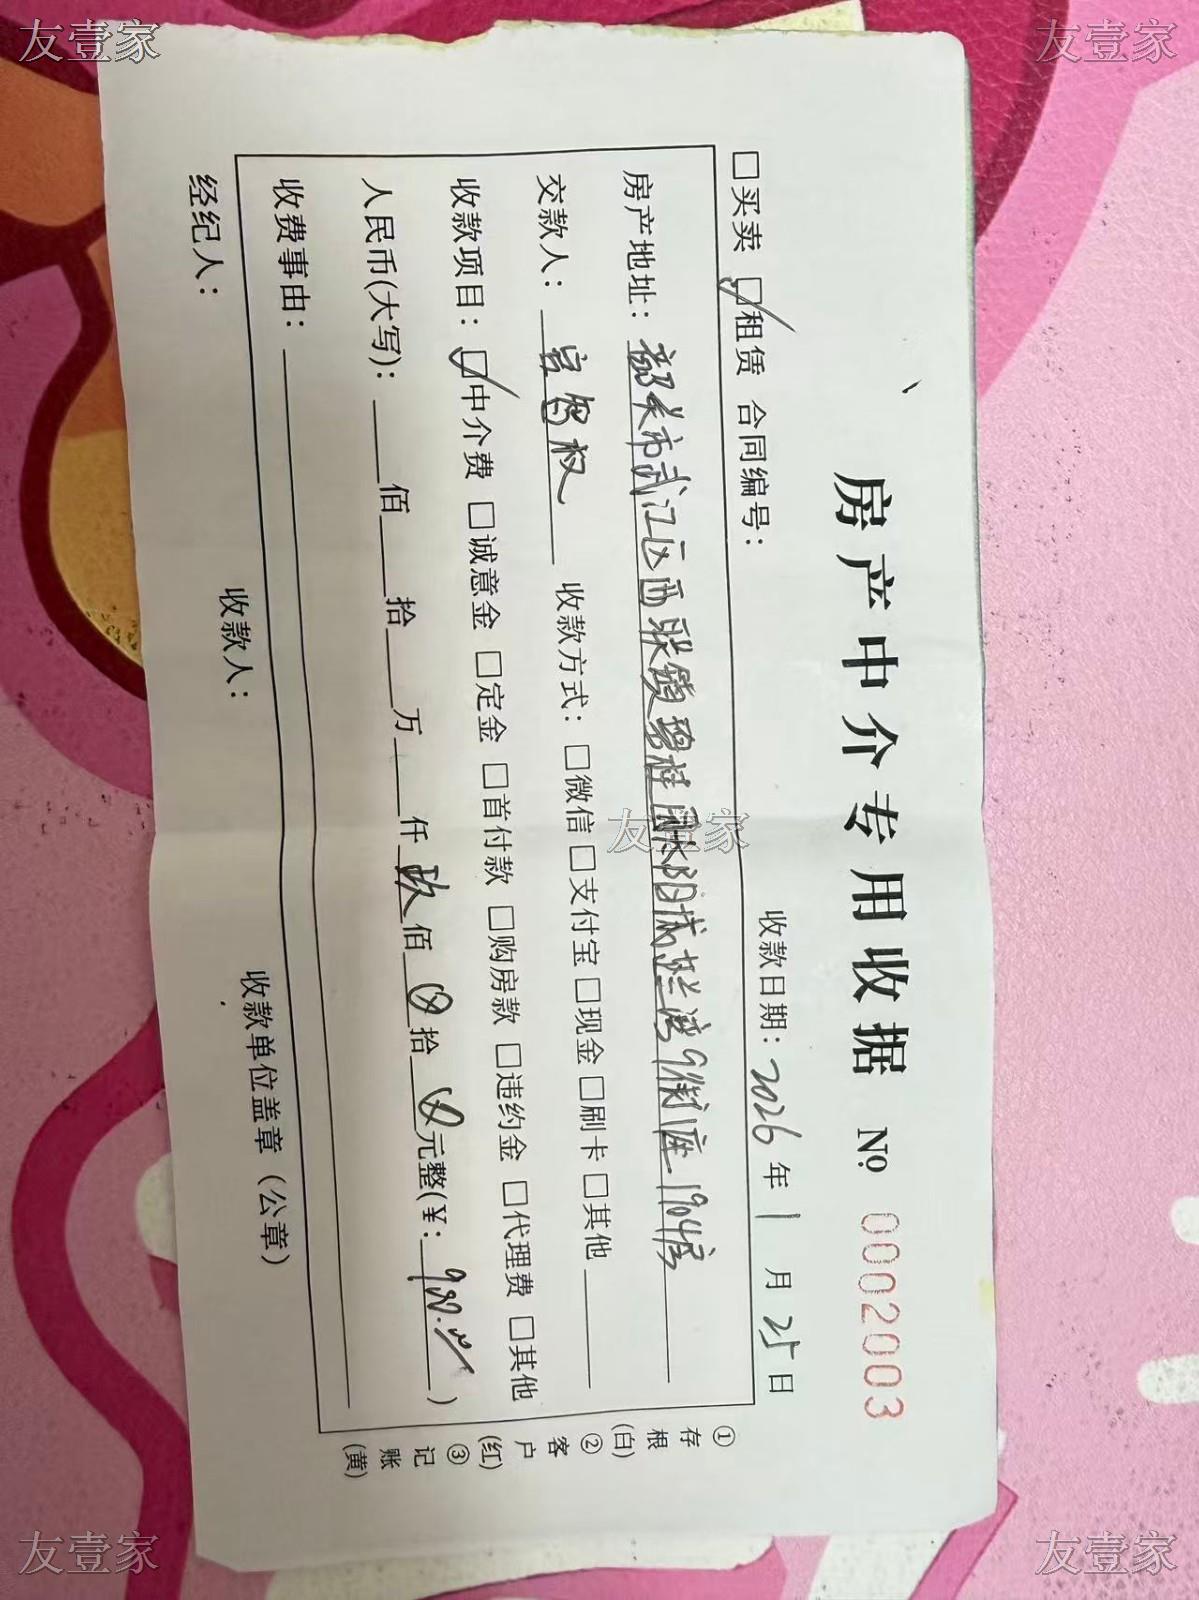 友壹家
友壹家
房产中介专用收据 № 0002003
□买卖 ☑租赁 合同编号： 收款日期：2026年1月25日
房产地址：韶关市武江区西联镇碧桂园太阳城芷兰湾9街 座1904房
交款人： 权 收款方式：□微信□支付宝□现金□刷卡□其他
收款项目：☑中介费 □诚意金 □定金 □首付款 □购房款 □违约金 □代理费 □其他
人民币(大写)： 佰 拾 万 仟玖佰⊗拾⊗元整(¥：900.00)
收费事由：
经纪人： 收款人： 收款单位盖章（公章）
①存根(白)
②客户(红)
③记账(黄)
友壹家
友壹家
友壹家